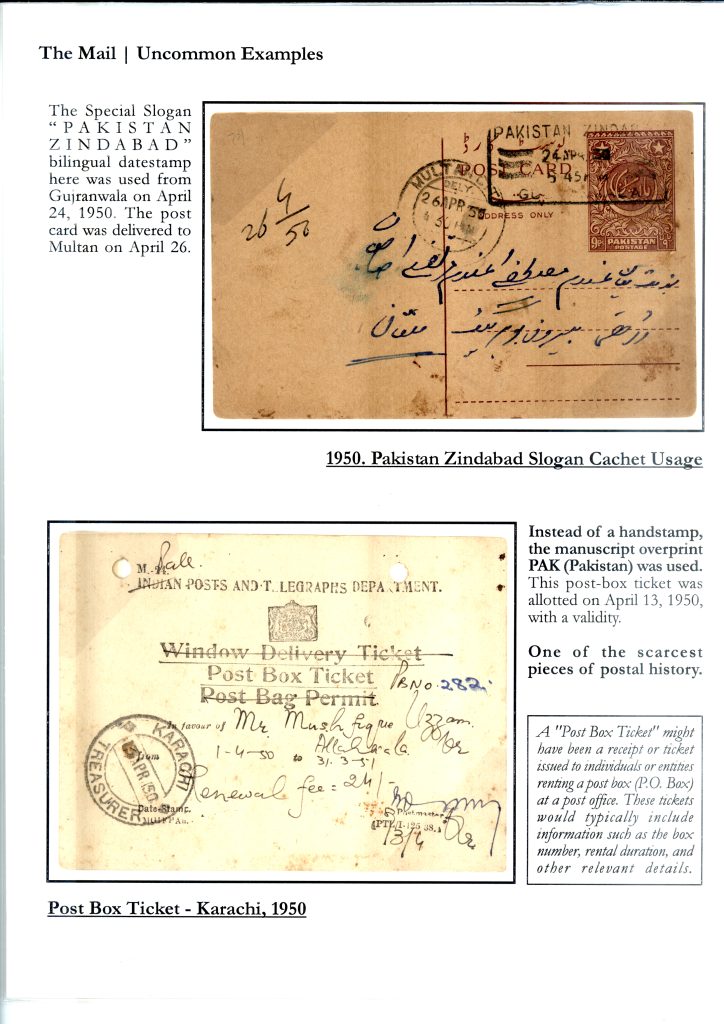 The Mail | Uncommon Examples
The Special Slogan
“PAKISTAN
ZINDABAD”
bilingual datestamp
here was used from
Gujranwala on April
24, 1950. The post
card was delivered to
Multan on April 26.
PAKISTAN ZINDABAD
24 APR 50
5 45
POST CARD
ADDRESS ONLY
MULTAN
DELY.
26 APR 50
26 4/50
9ps
PAKISTAN
POSTAGE
1950. Pakistan Zindabad Slogan Cachet Usage
INDIAN POSTS AND TELEGRAPHS DEPARTMENT.
Window Delivery Ticket
Post Box Ticket
PB No. 282.
Post Bag Permit
In favour of Mr. Mushfique Uzzam
From 1-4-50 to 31.3-51
Renewal fee = 24/-
KARACHI
APR 50
TREASURER
Date-Stamp.
Postmaster
13/4
Post Box Ticket - Karachi, 1950
Instead of a handstamp,
the manuscript overprint
PAK (Pakistan) was used.
This post-box ticket was
allotted on April 13, 1950,
with a validity.
One of the scarcest
pieces of postal history.
A "Post Box Ticket" might
have been a receipt or ticket
issued to individuals or entities
renting a post box (P.O. Box)
at a post office. These tickets
would typically include
information such as the box
number, rental duration, and
other relevant details.